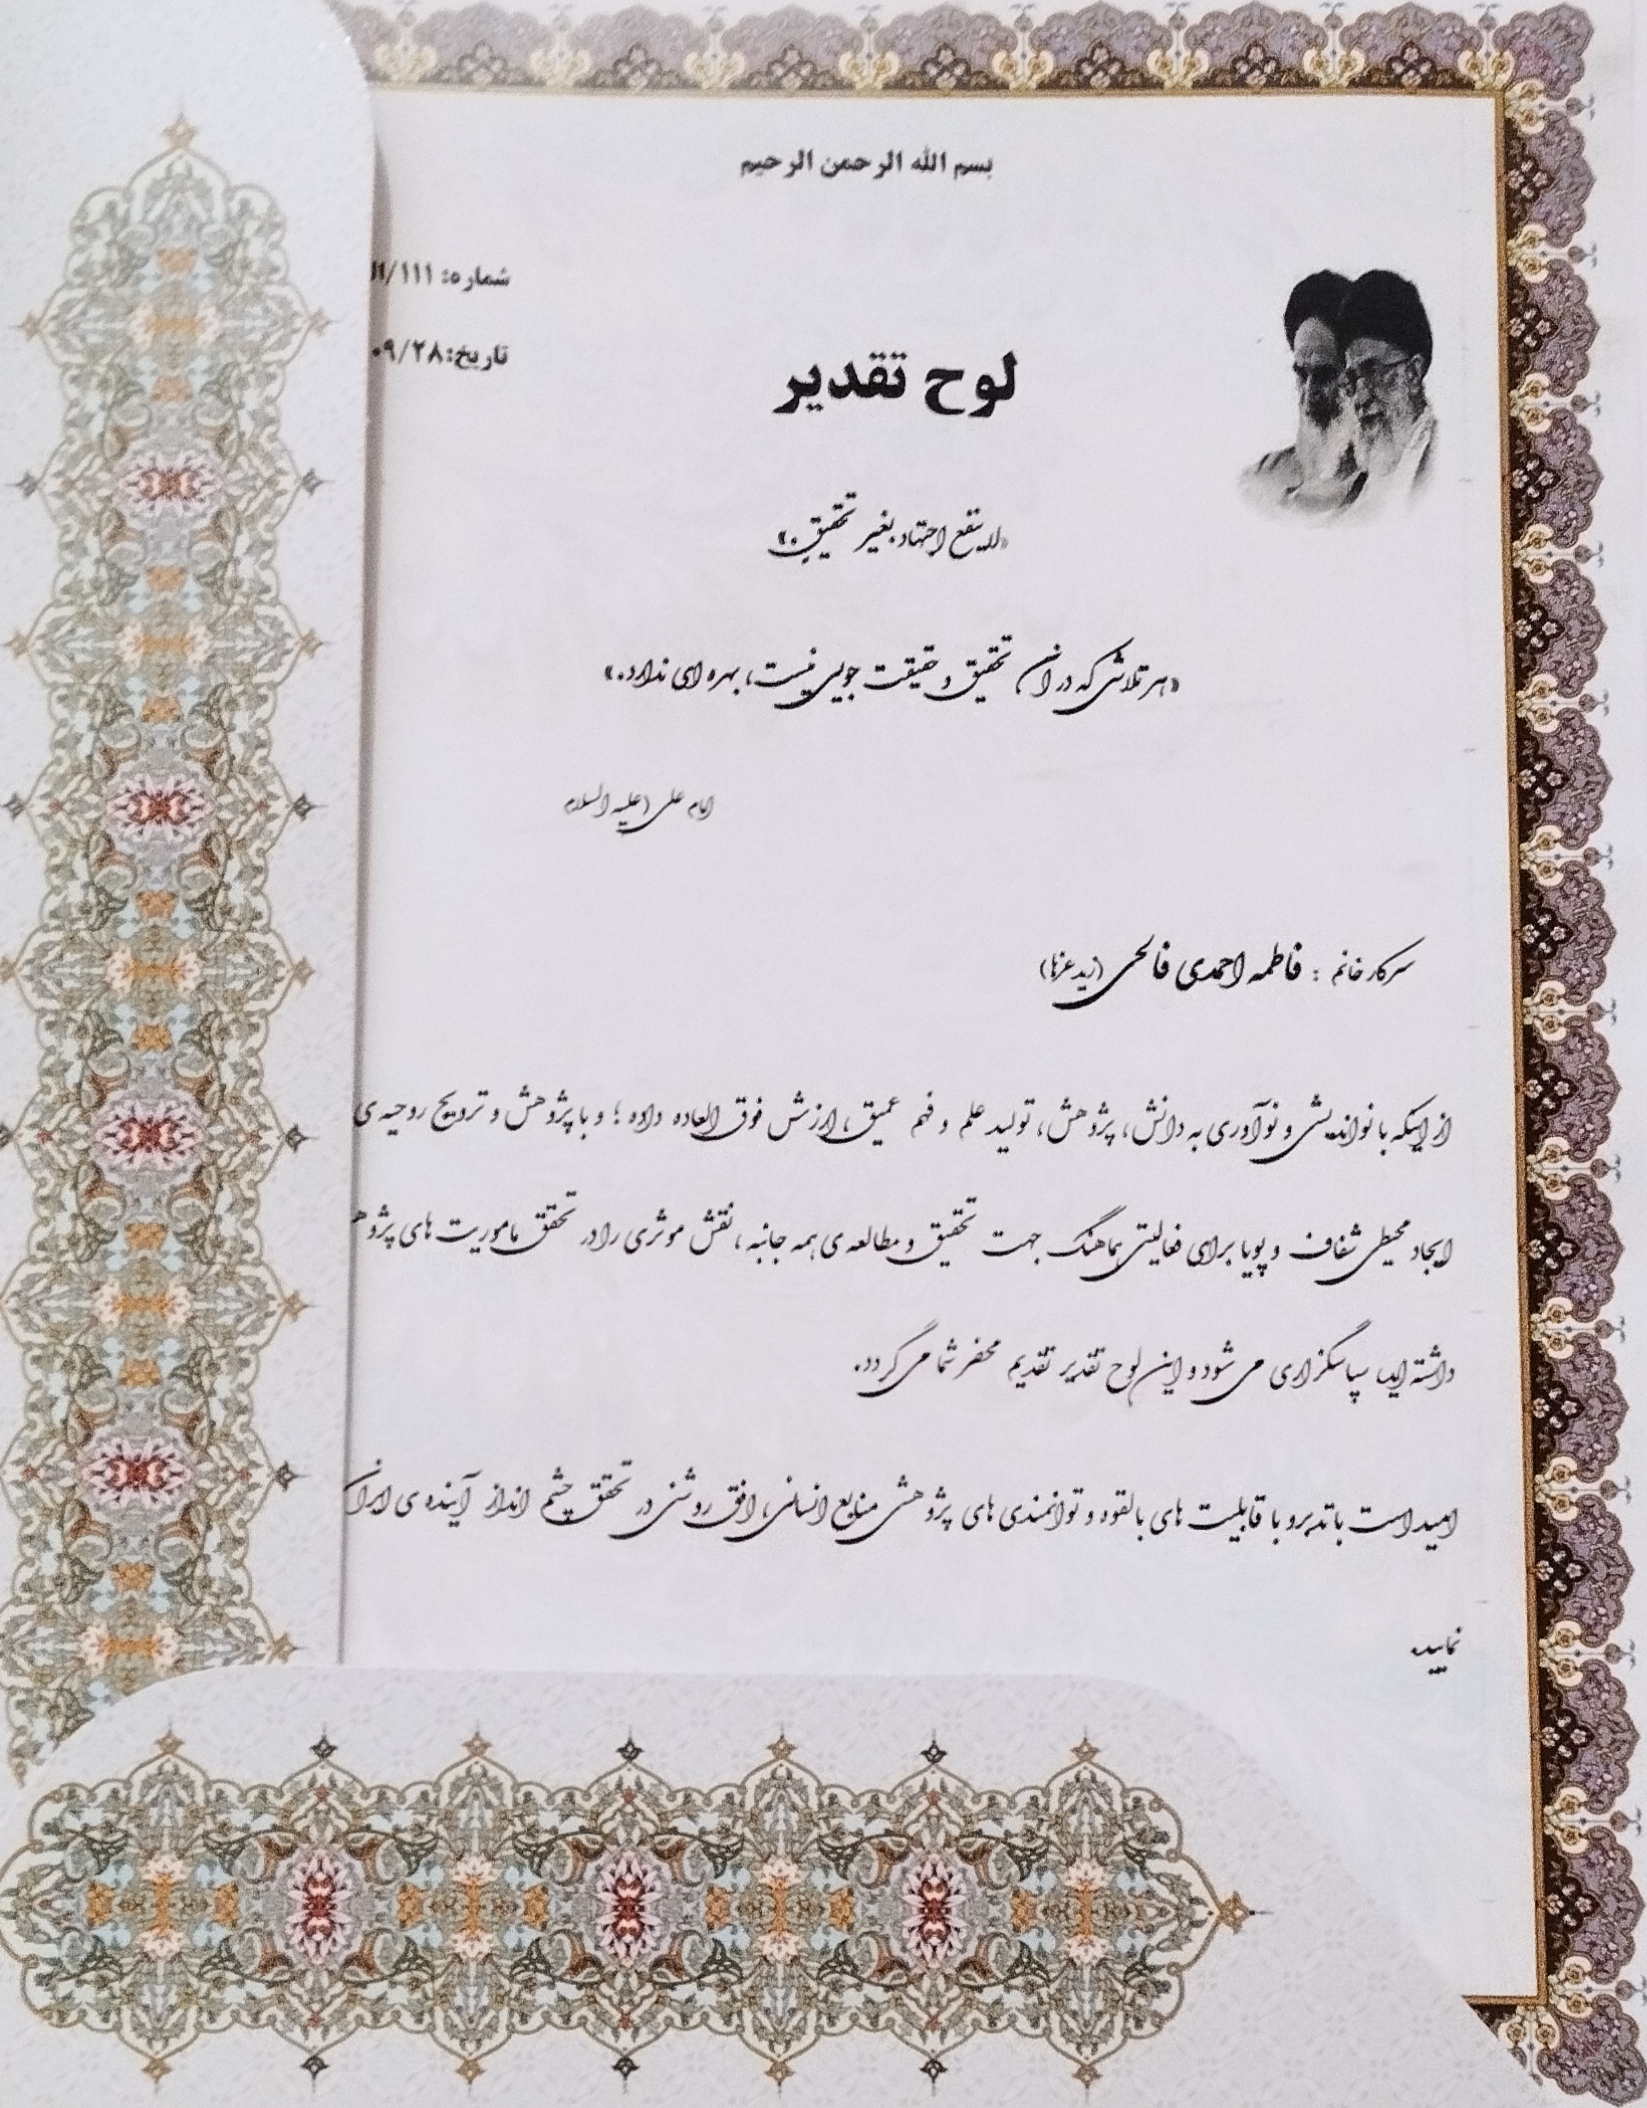 بسم الله الرحمن الرحیم
شماره: ۱۱۱/
تاریخ: ۰۹/۲۸
لوح تقدیر
«لا ینفع اجتهاد بغیر تحقیق.»
«هر تلاشی که در آن تحقیق و حقیقت جویی نیست، بهره ای ندارد.»
امام علی (علیه السلام
سرکار خانم : فاطمه احمدی فالحی (زید عزها)
از اینکه با نواندیشی و نوآوری به دانش، پژوهش، تولید علم و فهم عمیق، ارزش فوق العاده داده ؛ و با پژوهش و ترویج روحیه ی
ایجاد محیطی شفاف و پویا برای فعالیتی هماهنگ جهت تحقیق و مطالعه ی همه جانبه، نقش موثری را در تحقق ماموریت های پژوه
داشته اید، سپاسگزاری می شود و این لوح تقدیر تقدیم محضر شما می گردد.
امید است با تدبر و با قابلیت های بالقوه و توانمندی های پژوهشی منابع انسانی، افق روشنی در تحقق چشم انداز آینده ی ایران
نمایید.